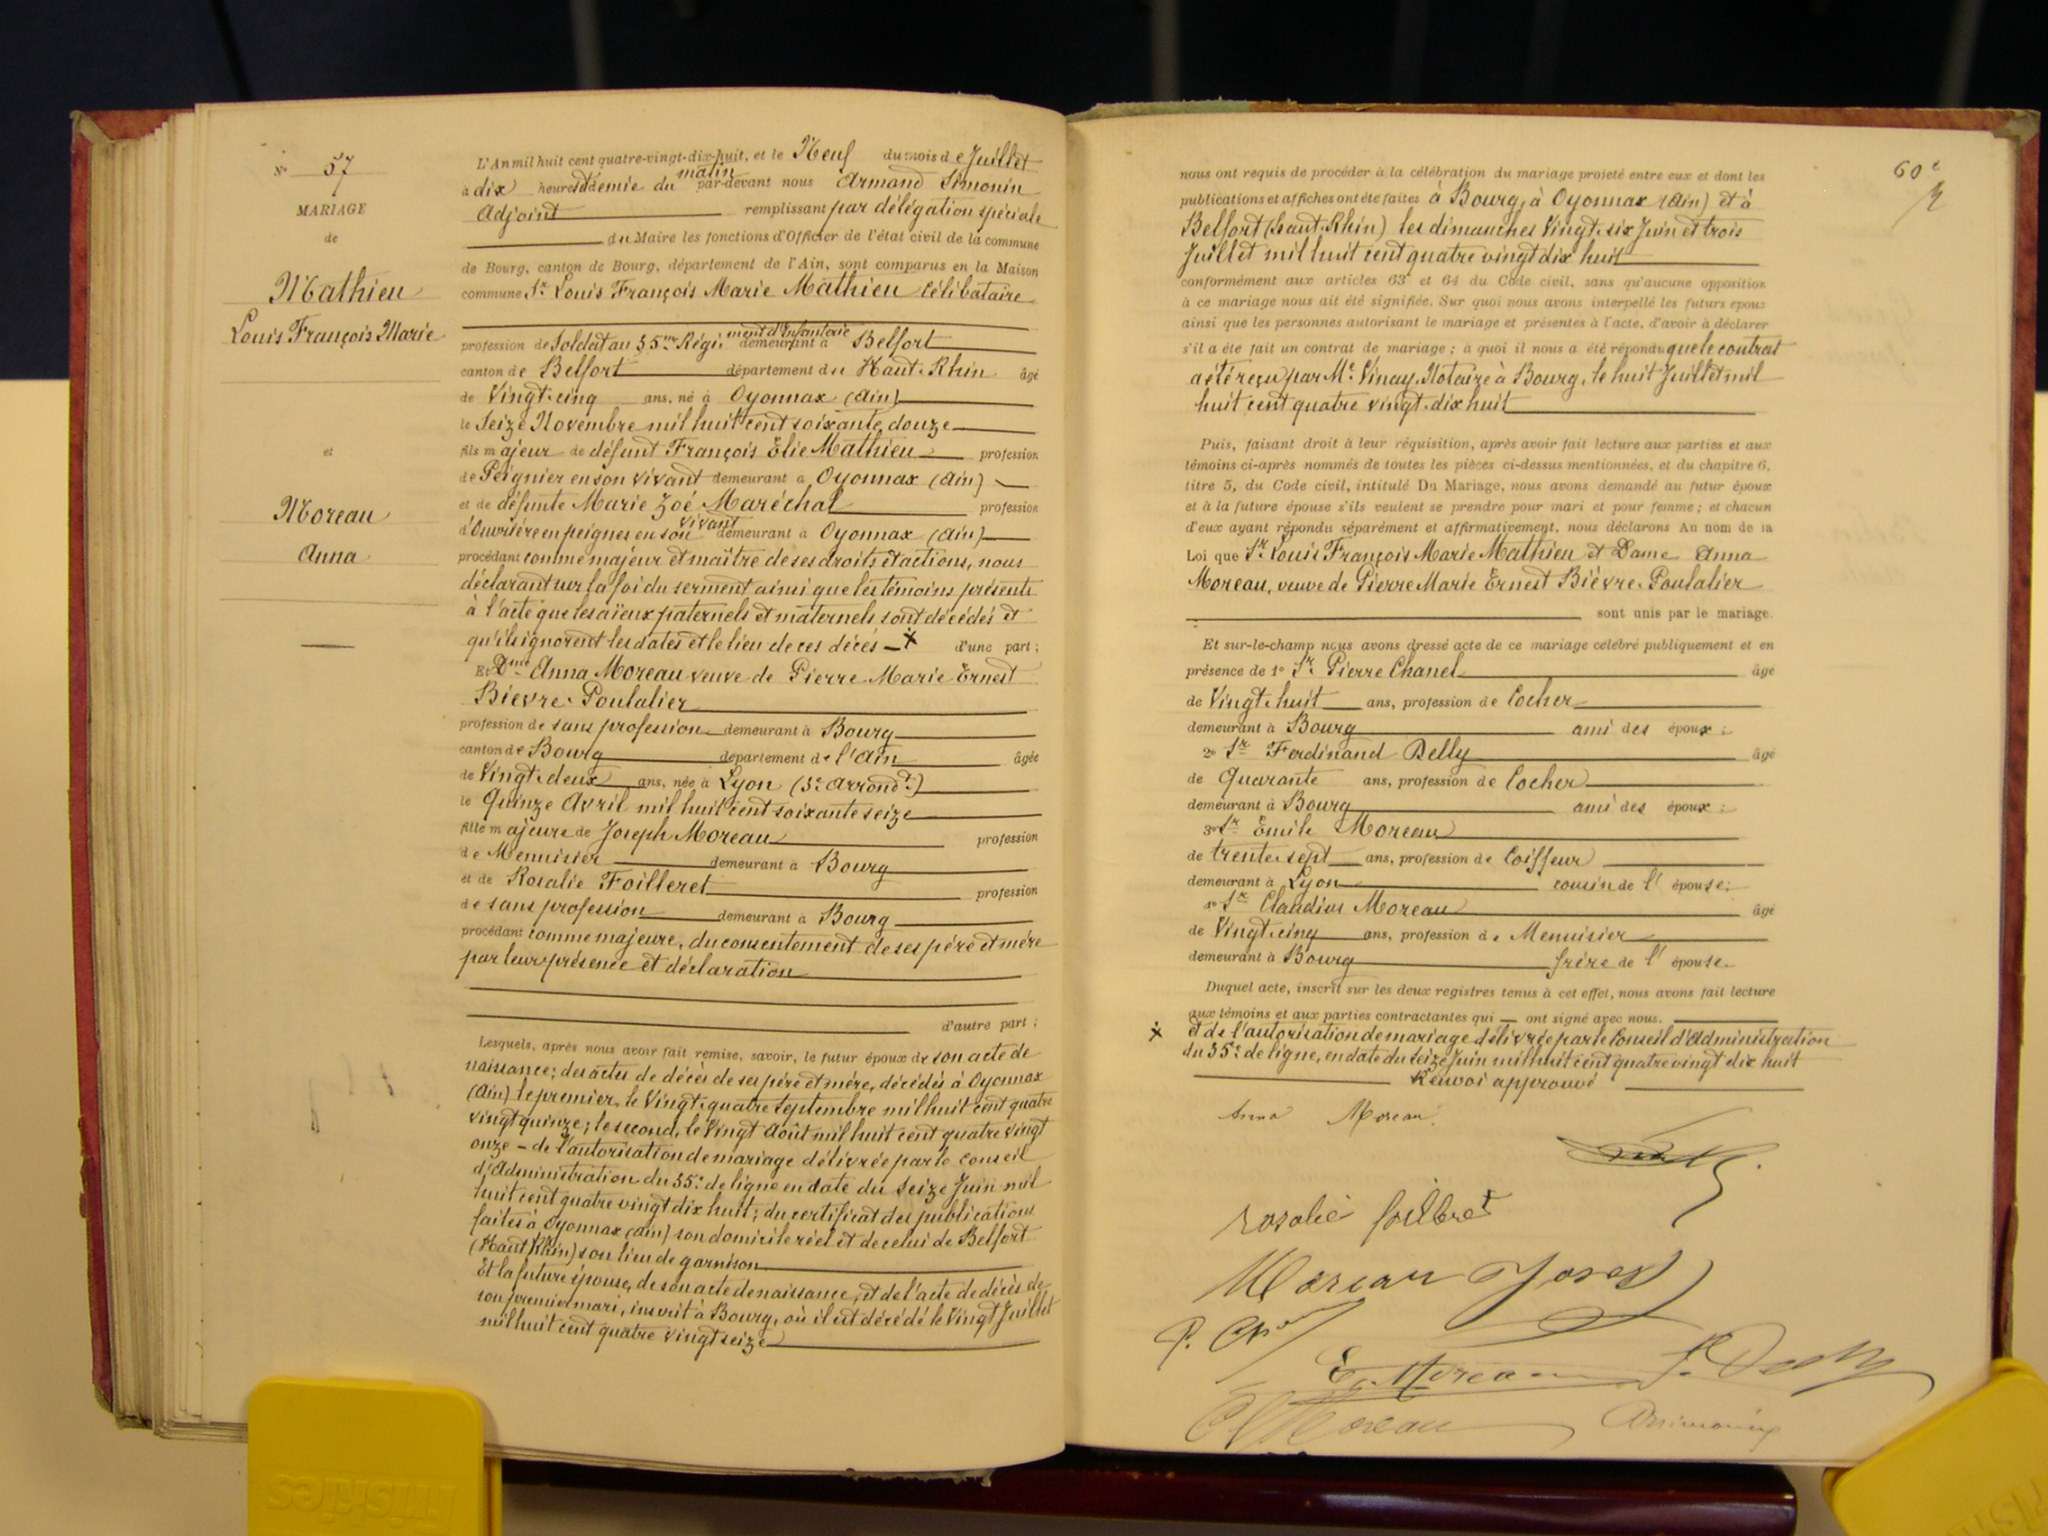 N° 57
MARIAGE
de
Mathieu
Louis François Marie
et
Moreau
Anna
L'An mil huit cent quatre-vingt-dix-huit, et le Neuf du mois de Juillet
à dix heures et demie du matin par-devant nous Armand Simonin
Adjoint remplissant par délégation spéciale
du Maire les fonctions d'Officier de l'état civil de la commune
de Bourg, canton de Bourg, département de l'Ain, sont comparus en la Maison
commune Sr Louis François Marie Mathieu Célibataire
profession de Soldat au 35me Régiment d'Infanterie demeurant à Belfort
canton de Belfort département du Haut-Rhin âgé
de Vingt-cinq ans, né à Oyonnax (Ain)
le Seize Novembre mil huit cent soixante douze
fils majeur de défunt François Élie Mathieu profession
de Peignier en son vivant demeurant à Oyonnax (Ain)
et de défunte Marie Zoé Maréchal profession
d'Ouvrière en peignes en son vivant demeurant à Oyonnax (Ain)
procédant comme majeur et maître de ses droits et actions, nous
déclarant sur la foi du serment ainsi que les témoins présents
à l'acte que les aïeux paternels et maternels sont décédés et
qu'ils ignorent les dates et le lieu de ces décés - x d'une part ;
Et Dme Anna Moreau veuve de Pierre Marie Ernest
Bièvre-Poulalier
profession de sans profession demeurant à Bourg
canton de Bourg département de l'Ain âgée
de Vingt-deux ans, née à Lyon (5e Arrondt)
le Quinze Avril mil huit cent soixante seize
fille majeure de Joseph Moreau profession
de Menuisier demeurant à Bourg
et de Rosalie Foilleret profession
de sans profession demeurant à Bourg
procédant comme majeure, du consentement de ses père et mère
par leur présence et déclaration
d'autre part ;
Lesquels, après nous avoir fait remise, savoir, le futur époux de son acte de
naissance ; des actes de décès de ses père et mère, décédés à Oyonnax
(Ain) le premier, le Vingt-quatre Septembre mil huit cent quatre
vingt quinze ; le second, le Vingt Août mil huit cent quatre vingt
onze - de l'autorisation de mariage délivrée par le Conseil
d'Administration du 35e de ligne en date du Seize Juin mil
huit cent quatre vingt dix huit ; du certificat des publications
faites à Oyonnax (Ain) son domicile réel et de celui de Belfort
(Haut Rhin) son lieu de garnison
Et la future épouse, de son acte de naissance, et de l'acte de décès de
son premier mari, inscrit à Bourg, où il est décédé le Vingt Juillet
mil huit cent quatre vingt seize
60e
nous ont requis de procéder à la célébration du mariage projeté entre eux et dont les
publications et affiches ont été faites à Bourg, à Oyonnax (Ain) et à
Belfort (Haut-Rhin) les dimanches Vingt-six Juin et trois
Juillet mil huit cent quatre vingt dix huit
conformément aux articles 63 et 64 du Code civil, sans qu'aucune opposition
à ce mariage nous ait été signifiée. Sur quoi nous avons interpellé les futurs époux
ainsi que les personnes autorisant le mariage et présentes à l'acte, d'avoir à déclarer
s'il a été fait un contrat de mariage ; à quoi il nous a été répondu que le contrat
a été reçu par Me Vinay, Notaire à Bourg, le huit Juillet mil
huit cent quatre vingt-dix huit
Puis, faisant droit à leur réquisition, après avoir fait lecture aux parties et aux
témoins ci-après nommés de toutes les pièces ci-dessus mentionnées, et du chapitre 6,
titre 5, du Code civil, intitulé Du Mariage, nous avons demandé au futur époux
et à la future épouse s'ils veulent se prendre pour mari et pour femme ; et chacun
d'eux ayant répondu séparément et affirmativement, nous déclarons Au nom de la
Loi que Sr Louis François Marie Mathieu et Dame Anna
Moreau, veuve de Pierre Marie Ernest Bièvre-Poulalier
sont unis par le mariage.
Et sur-le-champ nous avons dressé acte de ce mariage célébré publiquement et en
présence de 1° Sr Pierre Chanel âgé
de Vingt-huit ans, profession de Cocher
demeurant à Bourg ami des époux ;
2° Sr Ferdinand Delly âgé
de Quarante ans, profession de Cocher
demeurant à Bourg ami des époux ;
3° Sr Emile Moreau
de trente-sept ans, profession de Coiffeur
demeurant à Lyon cousin de l'épouse ;
4° Sr Claudius Moreau âgé
de Vingt-cinq ans, profession de Menuisier
demeurant à Bourg frère de l'épouse.
Duquel acte, inscrit sur les deux registres tenus à cet effet, nous avons fait lecture
aux témoins et aux parties contractantes qui ont signé avec nous.
x et de l'autorisation de mariage délivrée par le Conseil d'Administration
du 35e de ligne, en date du Seize Juin mil huit cent quatre vingt dix huit
Renvoi approuvé
Anna Moreau
rosalie foilleret
Moreau Joseph
E. Moreau
Cl Moreau
ASimonin